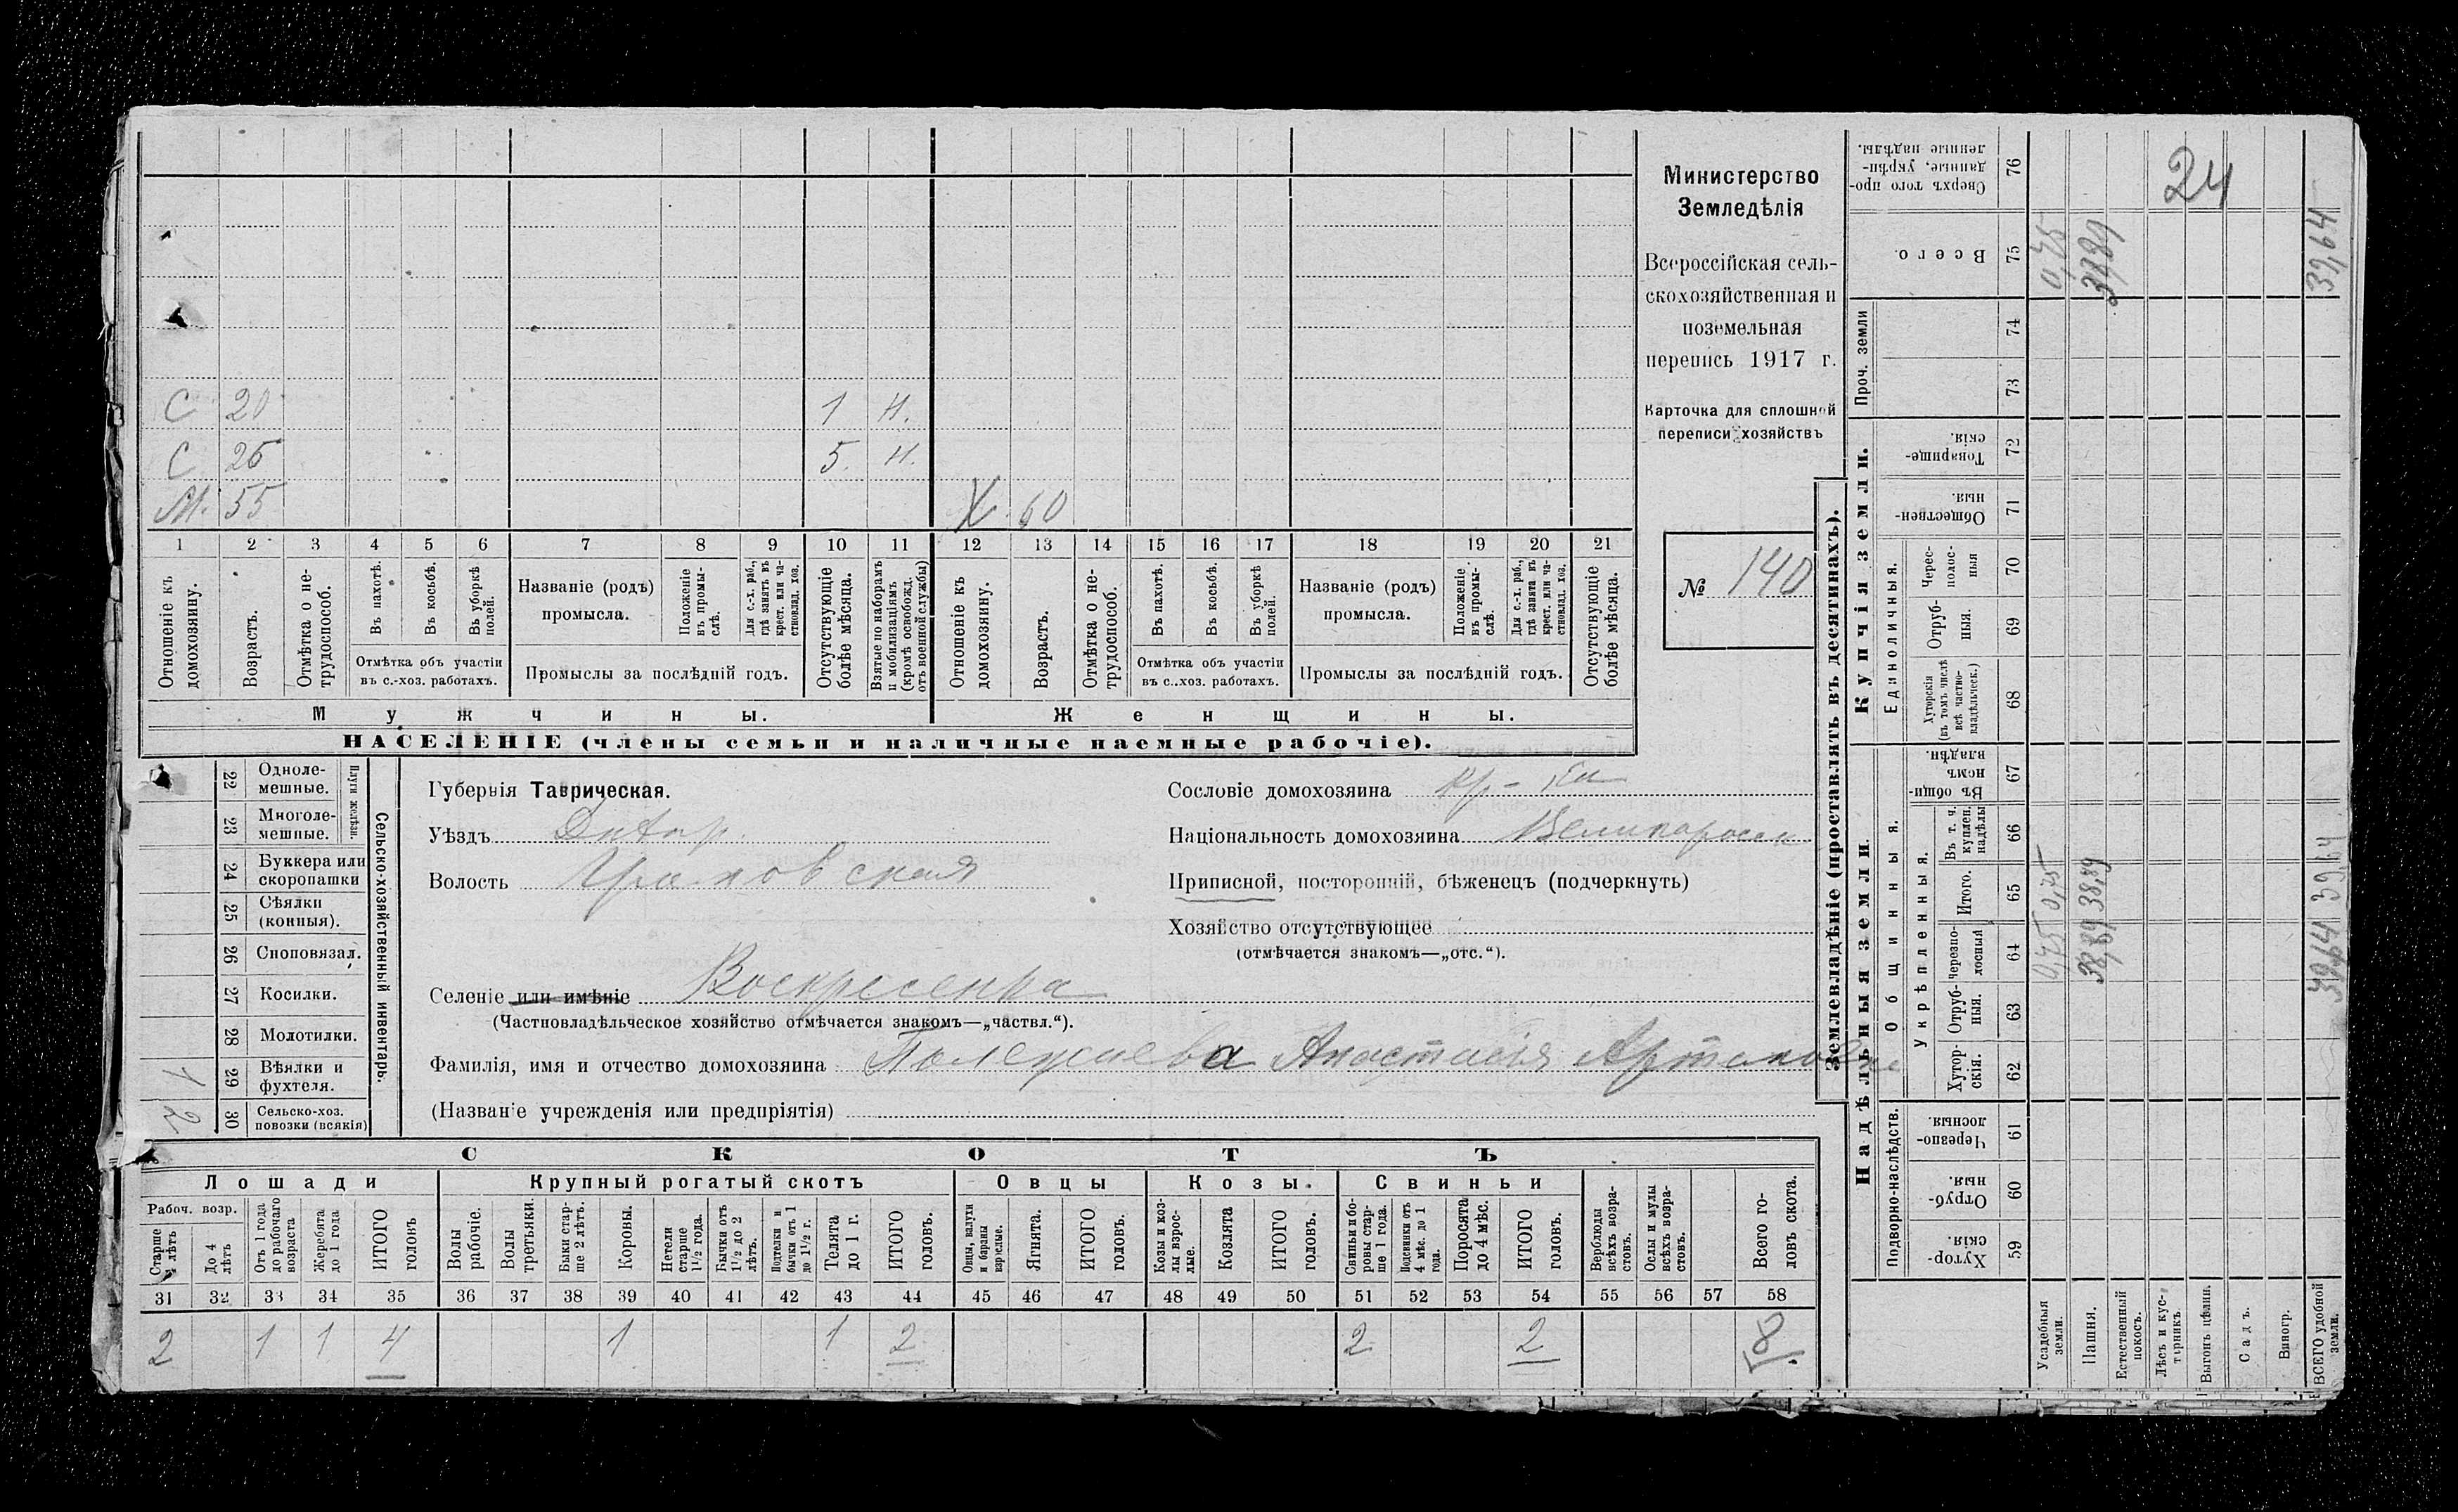 С 20 1 Н.
С 26 5. Н.
М. 55 Х. 60
1 2 3 4 5 6 7 8 9 10 11 12 13 14 15 16 17 18 19 20 21
Отношеніе къ домохозяину.
Возрастъ.
Отмѣтка о не-трудоспособ.
Въ пахотѣ.
Въ косьбѣ.
Въ уборкѣ полей.
Отмѣтка объ участіи
въ с.-хоз. работахъ.
Названіе (родъ)
промысла.
Положеніе въ промы-слѣ.
Для с.-х. раб., гдѣ занятъ въ крест. или ча-стновлад. хоз.
Промыслы за послѣдній годъ.
Отсутствующіе болѣе мѣсяца.
Взятые по наборамъ и мобилизаціямъ (кромѣ освобожд. отъ военной службы)
Отношеніе къ домохозяину.
Возрастъ.
Отмѣтка о не-трудоспособ.
Въ пахотѣ.
Въ косьбѣ.
Въ уборкѣ полей.
Отмѣтка объ участіи
въ с.-хоз. работахъ.
Названіе (родъ)
промысла.
Положеніе въ промы-слѣ.
Для с.-х. раб., гдѣ занята въ крест. или ча-стновлад. хоз.
Промыслы за послѣдній годъ.
Отсутствующіе болѣе мѣсяца.
Мужчины.
Женщины.
НАСЕЛЕНІЕ (члены семьи и наличные наемные рабочіе).
Министерство
Земледѣлія
Всероссійская сель-
скохозяйственная и
поземельная
перепись 1917 г.
Карточка для сплошной
переписи хозяйствъ
№ 140
Сельско-хозяйственный инвентарь.
Плуги желѣзн.
22 Одноле-мешные.
23 Многоле-мешные.
24 Буккера или скоропашки
25 Сѣялки (конныя).
26 Сноповязал.
27 Косилки.
28 Молотилки.
1 29 Вѣялки и фухтеля.
2 30 Сельско-хоз. повозки (всякія)
Губернія Таврическая.
Уѣздъ Днѣпр.
Волость
Сословіе домохозяина
Національность домохозяина Великоросс
Приписной, посторонній, бѣженецъ (подчеркнуть)
Хозяйство отсутствующее
(отмѣчается знакомъ—„отс.“).
Селеніе или имѣніе Воскресенка
(Частновладѣльческое хозяйство отмѣчается знакомъ—„частвл.“).
Фамилія, имя и отчество домохозяина Полежаева Анастасія
(Названіе учрежденія или предпріятія)
СКОТЪ
Лошади
Крупный рогатый скотъ
Овцы
Козы.
Свиньи
Рабоч. возр.
Старше 4 лѣтъ
До 4 лѣтъ
Отъ 1 года до рабочаго возраста
Жеребята до 1 года
ИТОГО головъ
Волы рабочіе.
Волы третьяки.
Быки стар-ше 2 лѣтъ.
Коровы.
Нетели старше 1½ года.
Бычки отъ 1½ до 2 лѣтъ.
Подтелки и бычки отъ 1 до 1½ г.
Телята до 1 г.
ИТОГО головъ.
Овцы, валухи и бараны взрослые.
Ягнята.
ИТОГО головъ.
Козы и коз-лы взрос-лые.
Козлята
ИТОГО головъ.
Свиньи и бо-ровы стар-ше 1 года.
Подсвинки отъ 4 мѣс. до 1 года.
Поросята до 4 мѣс.
ИТОГО головъ.
Верблюды всѣхъ возра-стовъ.
Ослы и мулы всѣхъ возра-стовъ.
Всего го-ловъ скота.
31 32 33 34 35 36 37 38 39 40 41 42 43 44 45 46 47 48 49 50 51 52 53 54 55 56 57 58
2 1 1 4 1 1 2 2 2 8
Землевладѣніе (проставлять въ десятинахъ).
Надѣльныя земли.
Купчія земли.
Проч. земли
Подворно-наслѣдств.
Общинныя.
Укрѣпленныя.
Единоличныя.
Хутор-скія. 59
Отруб-ныя. 60
Черезпо-лосныя 61
Хутор-скія. 62
Отруб-ныя. 63
Черезпо-лосныя 64
Итого. 65
Въ т. ч. куплен. надѣлы 66
Въ общи-номъ владѣн. 67
Хуторскія (въ томъ числѣ всѣ частно-владѣльческ.) 68
Отруб-ныя. 69
Черес-полос-ныя 70
Обществен-ныя. 71
Товарище-скія. 72
73
74
Всего. 75
Сверхъ того про-данные, укрѣп-ленные надѣлы. 76
24
Усадебныя земли. 0,75 0,75 0,75
Пашня. 38,89 38,89 38,89
Естественный покосъ.
Лѣсъ и кус-тарникъ.
Выгонъ цѣлин.
Садъ.
Виногр.
ВСЕГО удобной земли. 39,64 39,64 39,64